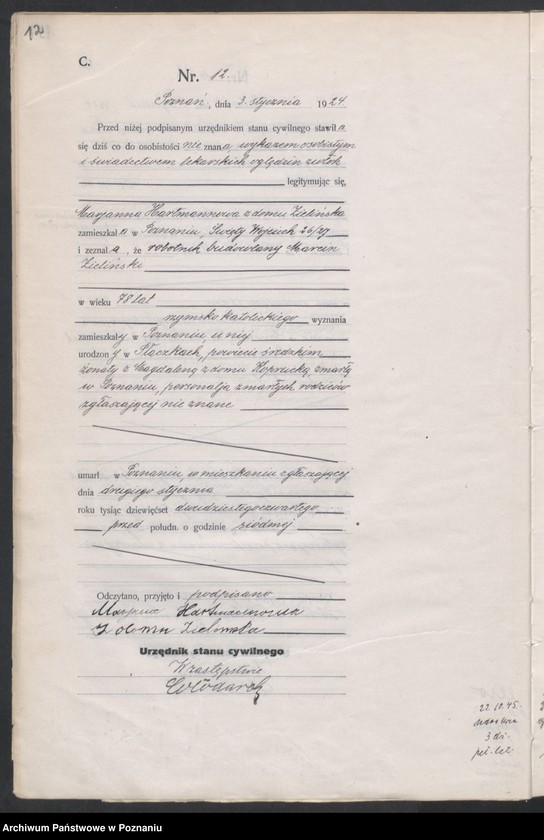 12
C.
Nr. 12.
Poznań, dnia 3. stycznia 1924.
Przed niżej podpisanym urzędnikiem stanu cywilnego stawił a
się dziś co do osobistości nie znan a, wykazem osobistym
i świadectwem lekarskich oględzin zwłok
legitymując się,
Marjanna Hartmannowa z domu Zielińska
zamieszkał a w Poznaniu, Święty Wojciech 26/27
i zeznał a, że robotnik budowlany Marcin
Zieliński
w wieku 78 lat
rzymsko katolickiego wyznania
zamieszkał y w Poznaniu, u niej
urodzon y w Płaczkach, powiecie średzkim
żonaty z Magdaleną z domu zmarłą
w Poznaniu, personalja zmarłych rodziców
zgłaszającej nie znane
umarł w Poznaniu, w mieszkaniu zgłaszającej
dnia drugiego stycznia
roku tysiąc dziewięćset dwudziestegoczwartego
przed połudn. o godzinie siódmej
Odczytano, przyjęto i podpisano
Marjanna Hartmannowa
z domu Zielinska
Urzędnik stanu cywilnego
W zastępstwie
22.10.45.
3 dż.
Archiwum Państwowe w Poznaniu